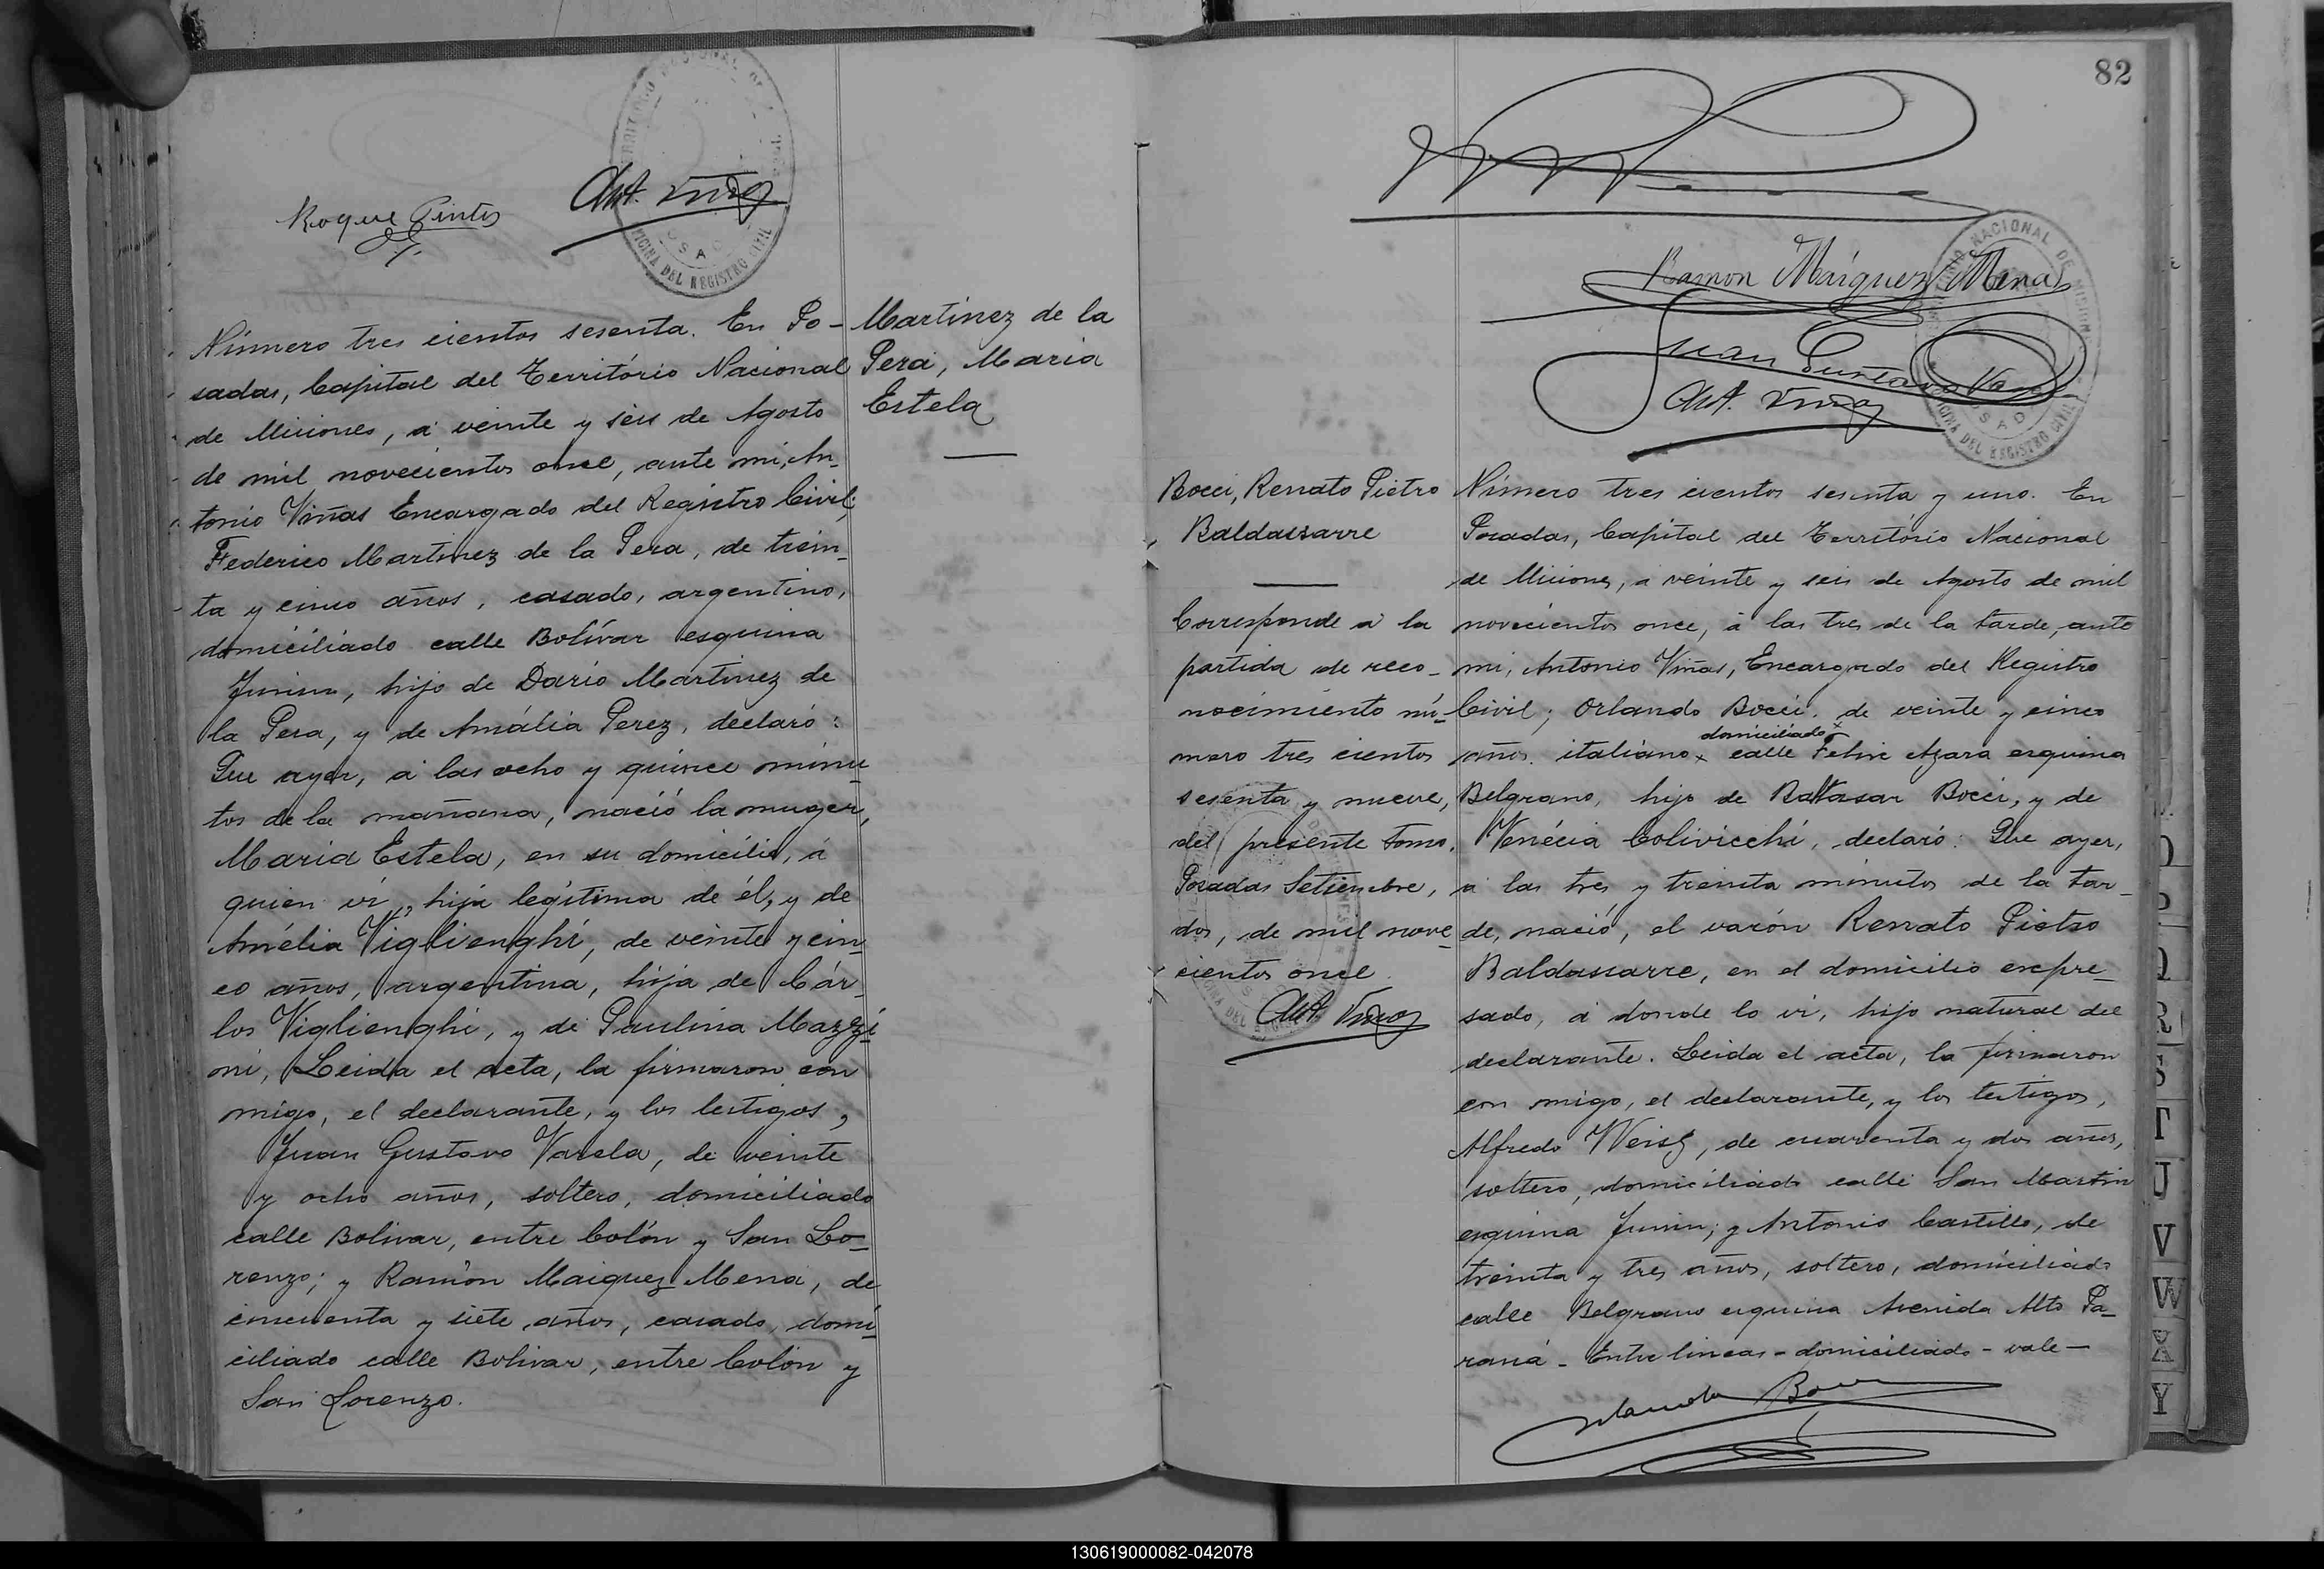 Roque Pinto
Ant. Viñas
OFICINA DEL REGISTRO CIVIL
Número tres cientos sesenta. En Po-
sadas, Capital del Território Nacional
de Misiones, á veinte y seis de Agosto
de mil novecientos once, ante mi, An-
tonio Viñas Encargado del Registro Civil;
Federico Martinez de la Pera, de trein-
ta y cinco años, casado, argentino,
domiciliado calle Bolívar esquina
Junin, hijo de Darío Martinez de
la Pera, y de Amália Perez, declaró:
Que ayer, á las ocho y quince minu-
tos de la mañana, nació la muger,
Maria Estela, en su domicilio, á
quien ví, hija legítima de él, y de
Amélia Viglienghi, de veinte y cin-
co años, argentina, hija de Cár-
los Viglienghi, y de Paulina Mazzi-
ni, Leida el acta, la firmaron con
migo, el declarante, y los testigos,
Juan Gustavo Varela, de veinte
y ocho años, soltero, domiciliado
calle Bolivar, entre Colón y San Lo-
renzo; y Ramón Maiquez Mena, de
cincuenta y siete años, casado, domi-
ciliado calle Bolivar, entre Colón y
San Lorenzo.
Martinez de la
Pera, Maria
Estela
82
Ramon Máiquez Mena
Juan Gustavo Varela
Ant. Viñas
OFICINA DEL REGISTRO CIVIL
Bocci, Renato Pietro
Baldassarre
Corresponde á la
partida de reco-
nocimiento nú-
mero tres cientos
sesenta y nueve,
del presente tomo.
Posadas Setiembre,
dos, de mil nove-
cientos once.
Ant. Viñas
Número tres cientos sesenta y uno. En
Posadas, Capital del Território Nacional
de Misiones, á veinte y seis de Agosto de mil
novecientos once, á las tres de la tarde, ante
mi, Antonio Viñas, Encargado del Registro
Civil; Orlando Bocci, de veinte y cinco
domiciliado
años, italiano, calle Felix Azara esquina
Belgrano, hijo de Baltasar Bocci, y de
Venécia Colivicchi, declaró: Que ayer,
á las tres y treinta minutos de la tar-
de, nació, el varón Renato Pietro
Baldassarre, en el domicilio expre-
sado, á donde lo ví, hijo natural del
declarante. Leida el acta, la firmaron
con migo, el declarante, y los testigos,
Alfredo Weisz, de cuarenta y dos años,
soltero, domiciliado calle San Martin
esquina Junin; y Antonio Castillo, de
treinta y tres años, soltero, domiciliado
calle Belgrano esquina Avenida Alto Pa-
raná - Entre lineas - domiciliado - vale -
Orlando Bocci
R
S
T
U
V
W
X
Y
130619000082-042078